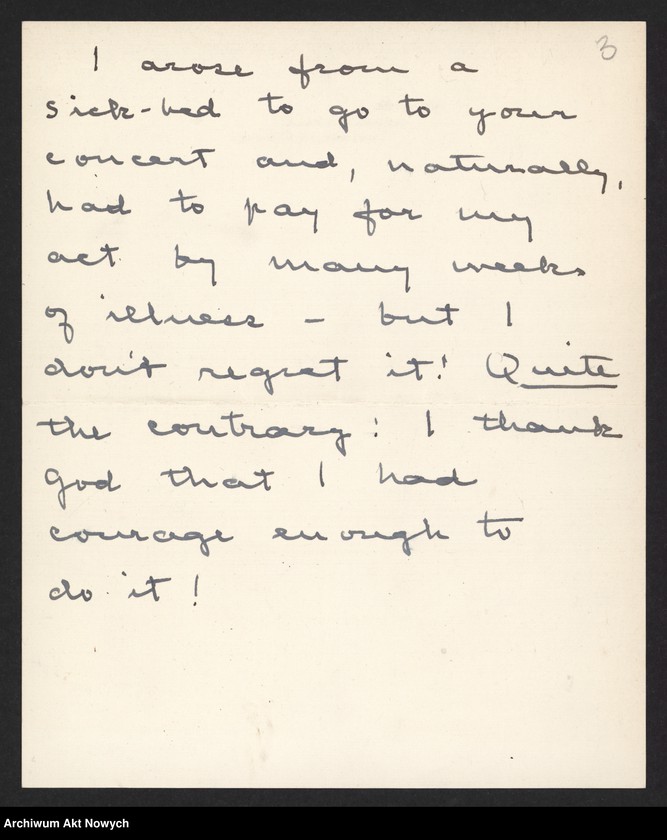 3
I arose from a
sick-bed to go to your
concert and, naturally,
had to pay for my
act by many weeks
of illness – but I
don't regret it! Quite
the contrary: I thank
God that I had
courage enough to
do it!
Archiwum Akt Nowych